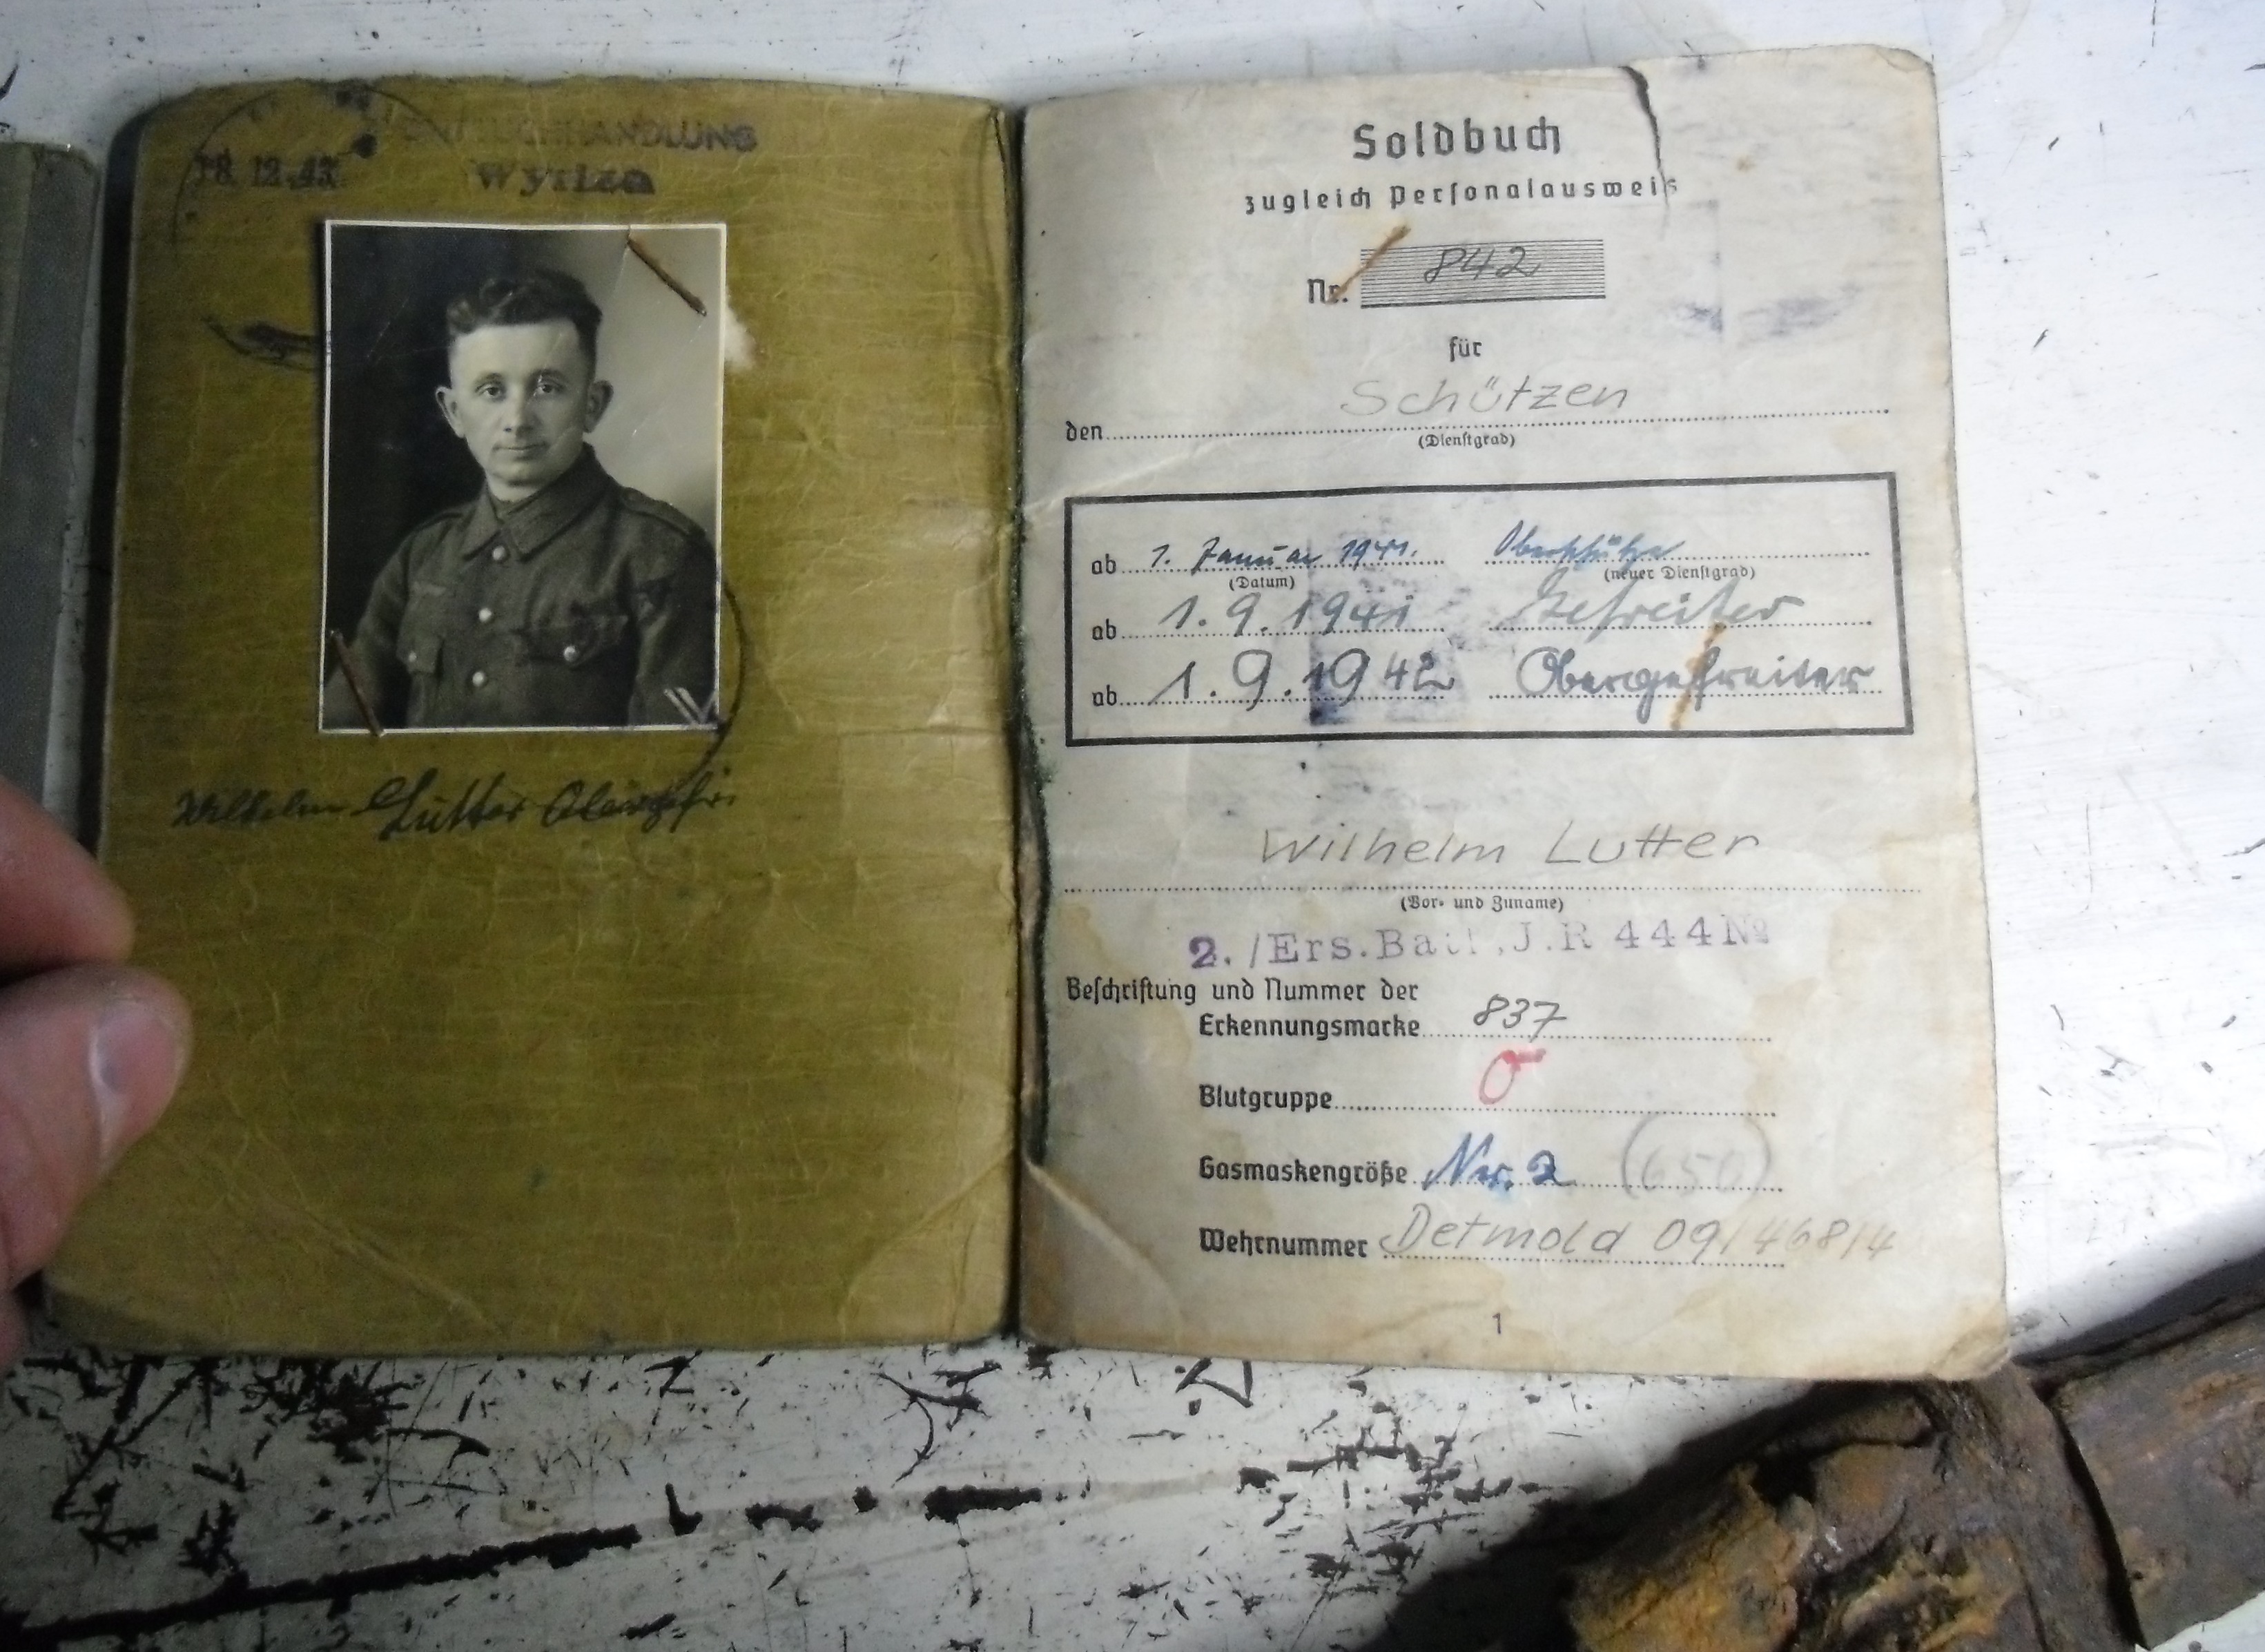 18. 12. 43
Wyriza
Wilhelm Lutter Obergefr.
Soldbuch
zugleich Personalausweis
Nr. 842
für
den Schützen
(Dienstgrad)
ab 1. Januar 1941. Oberschütze
(Datum) (neuer Dienstgrad)
ab 1.9.1941 Gefreiter
ab 1.9.1942 Obergefreiter
Wilhelm Lutter
(Vor- und Zuname)
2./Ers.Batl.,J.R 444 №
Beschriftung und Nummer der
Erkennungsmarke 837
Blutgruppe O
Gasmaskengröße Nr. 2 (650)
Wehrnummer Detmold 09/468/4
1